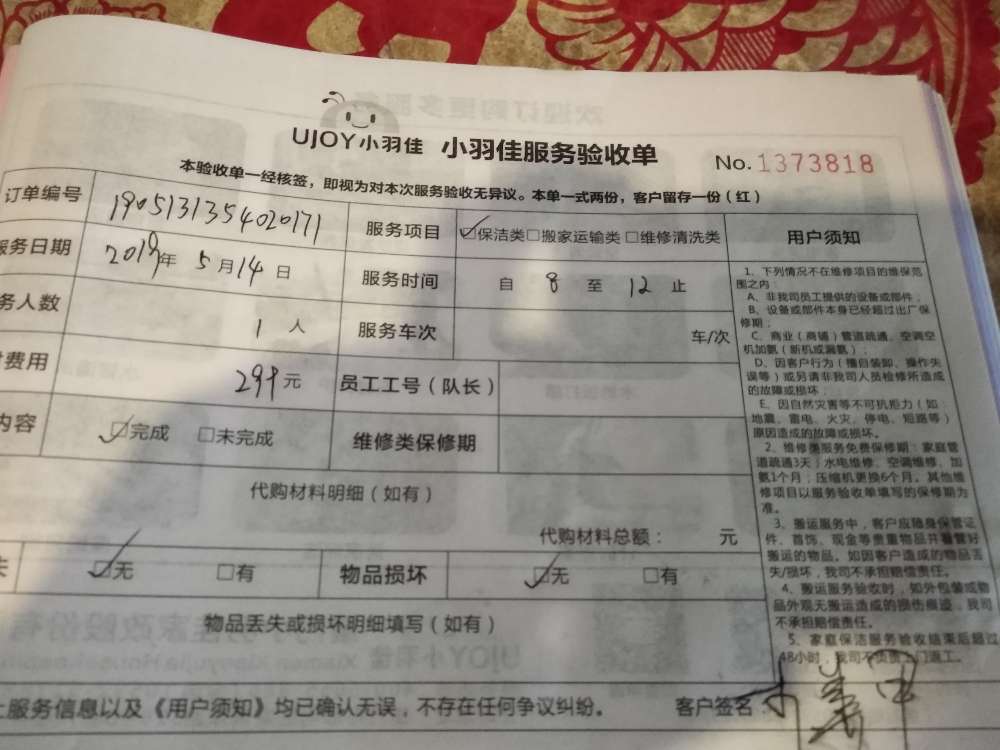 UJOY小羽佳 小羽佳服务验收单 No.1373818
本验收单一经核签，即视为对本次服务验收无异议。本单一式两份，客户留存一份（红）
订单编号 1905131354020171 服务项目 ☑保洁类□搬家运输类□维修清洗类 用户须知
服务日期 2019年 5月14日 服务时间 自 8 至 12 止
务人数 1人 服务车次 车/次
费用 299元 员工工号（队长）
内容 ☑完成 □未完成 维修类保修期
代购材料明细（如有）
代购材料总额： 元
☑无 □有 物品损坏 ☑无 □有
物品丢失或损坏明细填写（如有）
上服务信息以及《用户须知》均已确认无误，不存在任何争议纠纷。 客户签名
1、下列情况不在维修项目的维保范
围之内：
A、非我司员工提供的设备或部件；
B、设备或部件本身已经超过出厂保
修期；
C、商业（商铺）管道疏通、空调空
机加氨（新机或漏氨）；
D、因客户行为（擅自装卸、操作失
误等）或另请非我司人员检修所造成
的故障或损坏；
E、因自然灾害等不可机拒力（如：
地震、雷电、火灾、停电、短路等）
原因造成的故障或损坏。
2、维修类服务免费保修期：家庭管
道疏通3天；水电维修、空调维修、加
氨1个月；压缩机更换6个月。其他维
修项目以服务验收单填写的保修期为
准。
3、搬运服务中，客户应随身保管证
件、首饰、现金等贵重物品并看管好
搬运的物品。如因客户造成的物品丢
失/损坏，我司不承担赔偿责任。
4、搬运服务验收时，如外包装或物
品外观无搬运造成的损伤痕迹，我司
不承担赔偿责任。
5、家庭保洁服务验收结束后超过
48小时，我司不负责上门返工。